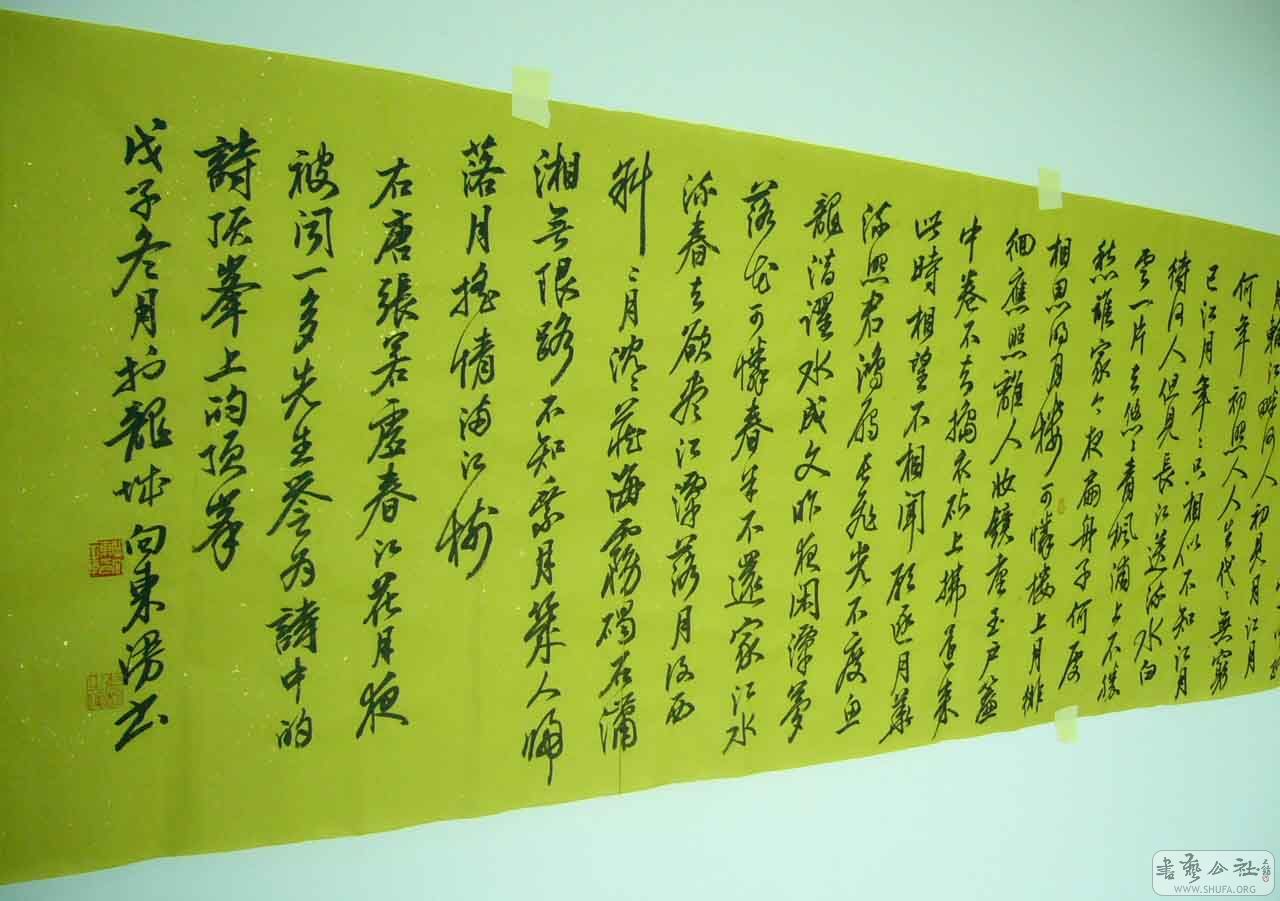 月輪江畔何人初見月江月
何年初照人人生代〻無窮
已江月年〻只相似不知江月
待何人但見長江送流水白
雲一片去悠〻青楓浦上不勝
愁誰家今夜扁舟子何處
相思明月樓可憐樓上月徘
徊應照離人妝鏡臺玉戶簾
中卷不去搗衣砧上拂還來
此時相望不相聞願逐月華
流照君鴻雁長飛光不度魚
龍潛躍水成文昨夜閑潭夢
落花可憐春半不還家江水
流春去欲盡江潭落月復西
斜〻月沉〻藏海霧碣石瀟
湘無限路不知乘月幾人歸
落月搖情滿江樹
右唐張若虛春江花月夜
被聞一多先生譽為詩中的
詩頂峯上的頂峯
戊子冬月於龍城向東書
書藝公社
WWW.SHUFA.ORG